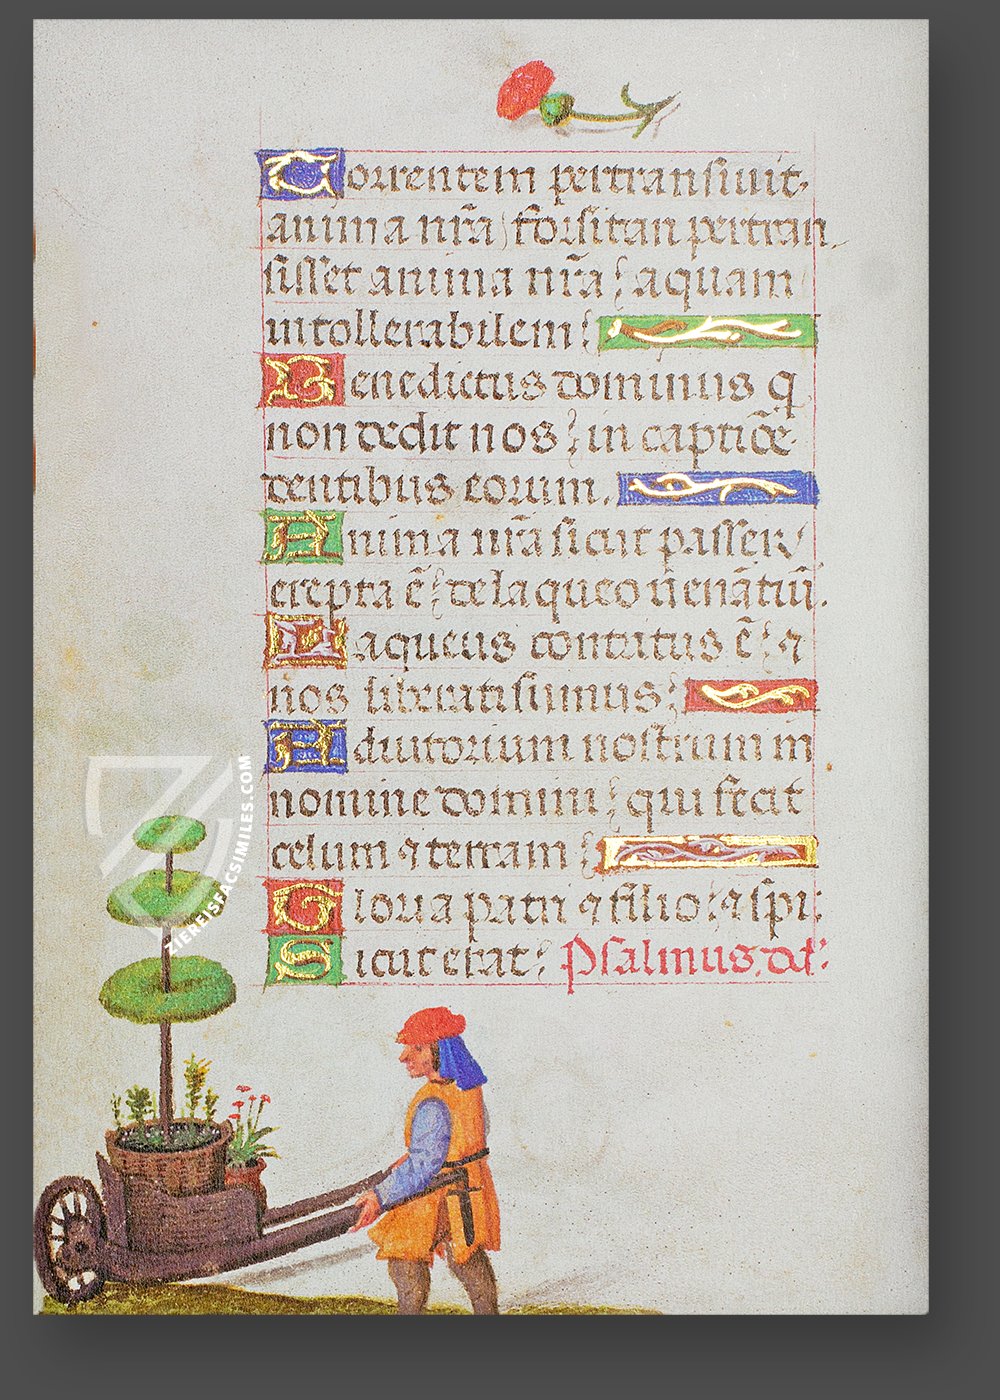 Torrentem pertransiuit
anima nr̃a forsitan pertran
siss̃et anima nr̃a aquam
intollerabilem
Benedictus dominus q
non dedit nos in captiõe
dentibus eorum.
Anima nr̃a sicut passer
erepta ẽ de laqueo uenãtiũ.
Laqueus contritus ẽ ⁊
nos liberati sumus
Adiutorium nostrum in
nomine domini qui fecit
celum ⁊ terram
Gloria patri ⁊ filio ⁊ spi:
Sicut erat. Psalmus.
ZIEREISFACSIMILES.COM